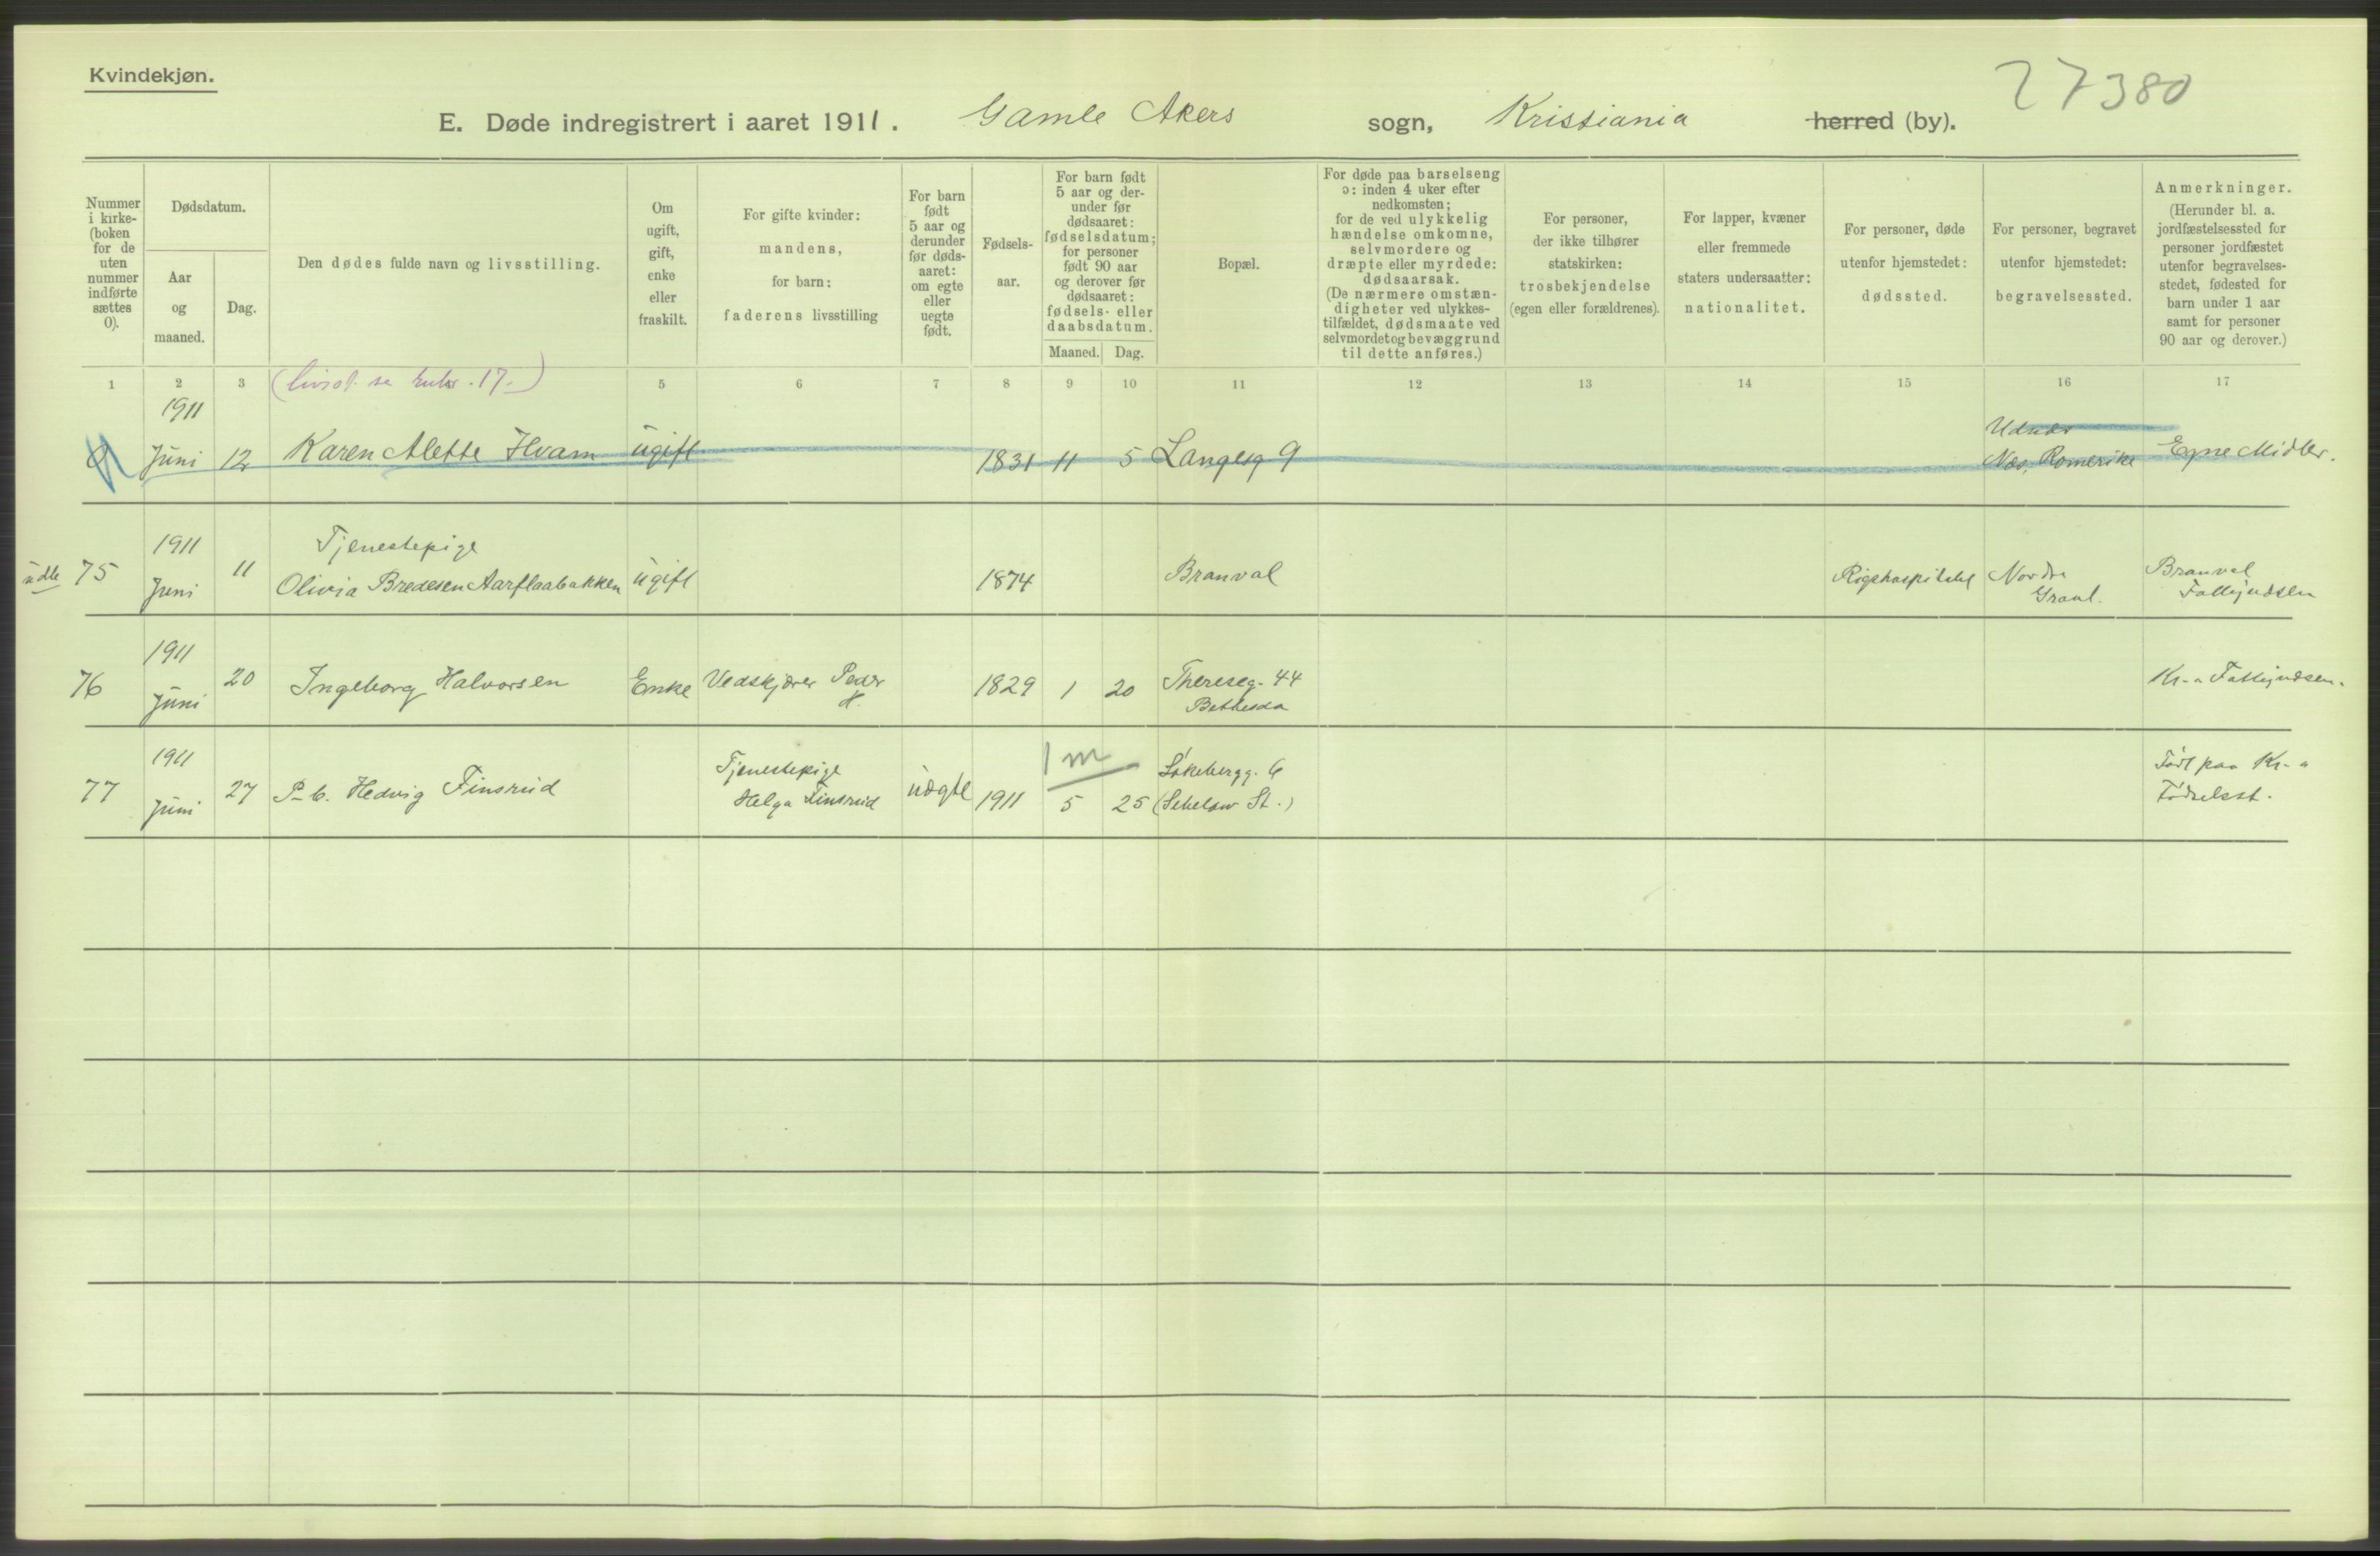 Kvindekjøn.
27380
E. Døde indregistrert i aaret 1911. Gamle Akers sogn, Kristiania herred (by).
Nummer i kirke-(boken for de uten nummer indførte sættes 0).
Dødsdatum.
Aar og maaned.
Dag.
Den dødes fulde navn og livsstilling.
Om ugift, gift, enke eller fraskilt.
For gifte kvinder: mandens, for barn: faderens livsstilling
For barn født 5 aar og derunder før døds-aaret: om egte eller uegte født.
Fødsels-aar.
For barn født 5 aar og der-under før dødsaaret: fødselsdatum; for personer født 90 aar og derover før dødsaaret: fødsels- eller daabsdatum.
Maaned. Dag.
Bopæl.
For døde paa barselseng ɔ: inden 4 uker efter nedkomsten; for de ved ulykkelig hændelse omkomne, selvmordere og dræpte eller myrdede: dødsaarsak. (De nærmere omstæn-digheter ved ulykkes-tilfældet, dødsmaate ved selvmordet og bevæggrund til dette anføres.)
For personer, der ikke tilhører statskirken: trosbekjendelse (egen eller forældrenes).
For lapper, kvæner eller fremmede staters undersaatter: nationalitet.
For personer, døde utenfor hjemstedet: dødssted.
For personer, begravet utenfor hjemstedet: begravelsessted.
Anmerkninger. (Herunder bl. a. jordfæstelsessted for personer jordfæstet utenfor begravelses-stedet, fødested for barn under 1 aar samt for personer 90 aar og derover.)
1 2 3 (livsst. se rubr. 17.) 5 6 7 8 9 10 11 12 13 14 15 16 17
1911
0 Juni 12 Karen Alette Hvam ugift 1831 11 5 Langesg 9 Næs, Romerike Egne Midler.
1911 Tjenestepige
75 Juni 11 Olivia Bredesen Aarflaabakken ugift 1874 Branval Rigshospitalet Nordre Granl. Branval Fattigvæsen
1911
76 Juni 20 Ingeborg Halvorsen Enke Vedskjærer Peder H. 1829 1 20 Thereseg. 44 Bethesda Kr.a Fattigvæsen.
1911 Tjenestepige 1 m Født paa Kr.a
77 Juni 27 P.b. Hedvig Finsrud Helga Finsrud uægte 1911 5 25 Fødselsst.